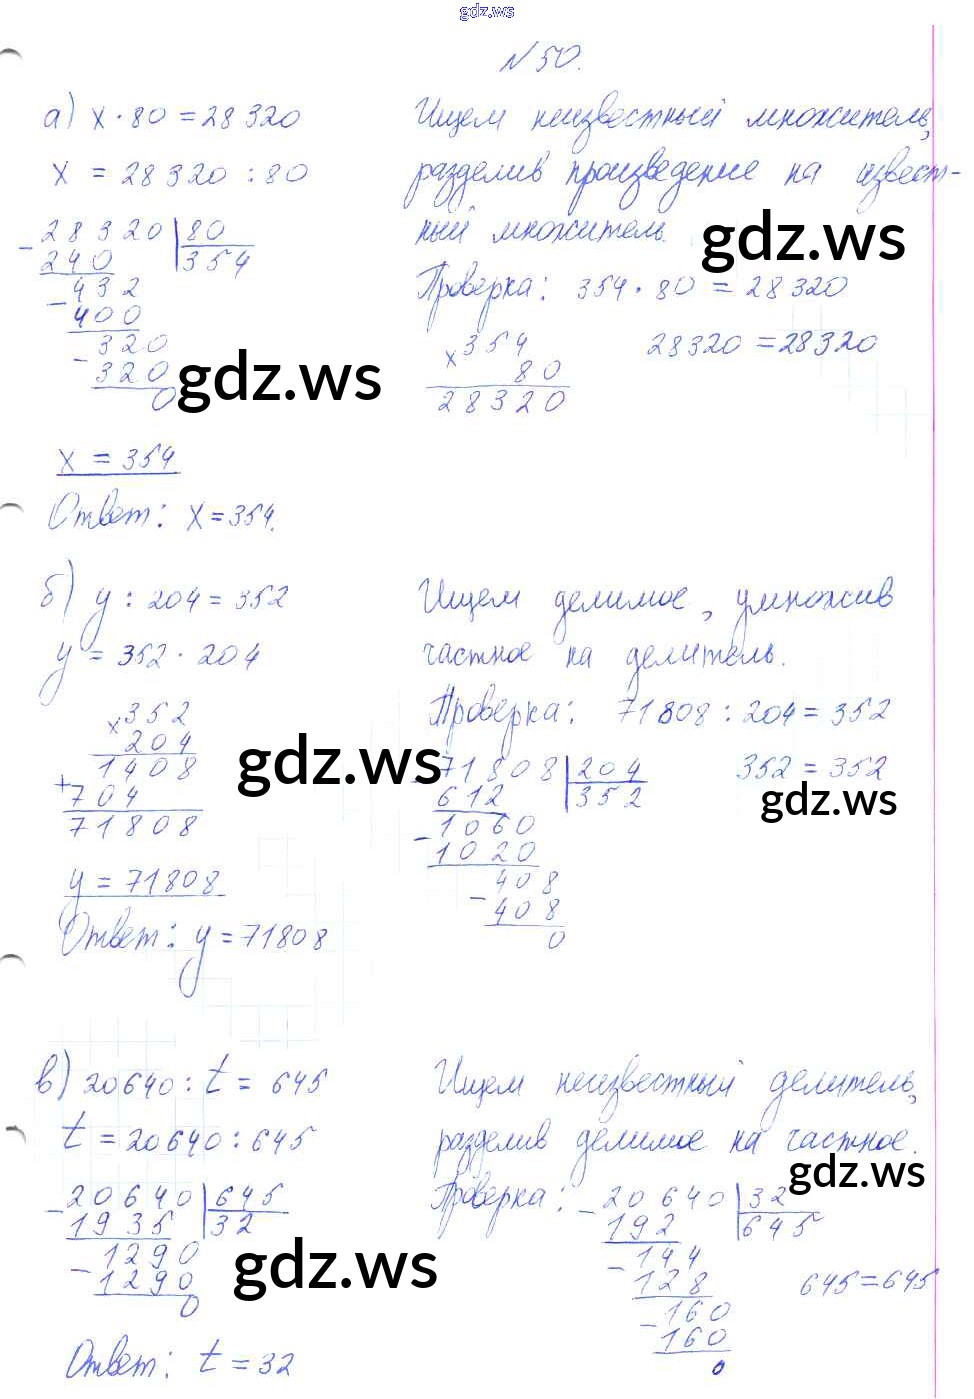 gdz.ws
N 50.
а) x · 80 = 28320
x = 28320 : 80
- 28320 | 80
240 | 354
- 432
400
- 320
320
0
x = 354
Ответ: x = 354.
Ищем неизвестный множитель,
разделив произведение на извест-
ный множитель.
gdz.ws
Проверка: 354 · 80 = 28320
x 354
80
28320
28320 = 28320
gdz.ws
б) y : 204 = 352
y = 352 · 204
x 352
204
1408
+ 704
71808
y = 71808
Ответ: y = 71808
Ищем делимое, умножив
частное на делитель.
Проверка: 71808 : 204 = 352
gdz.ws
- 71808 | 204
612 | 352
- 1060
1020
- 408
408
0
352 = 352
gdz.ws
в) 20640 : t = 645
t = 20640 : 645
- 20640 | 645
1935 | 32
- 1290
1290
0
gdz.ws
Ответ: t = 32
Ищем неизвестный делитель,
разделив делимое на частное.
gdz.ws
Проверка: - 20640 | 32
192 | 645
- 144
128
- 160
160
0
645 = 645